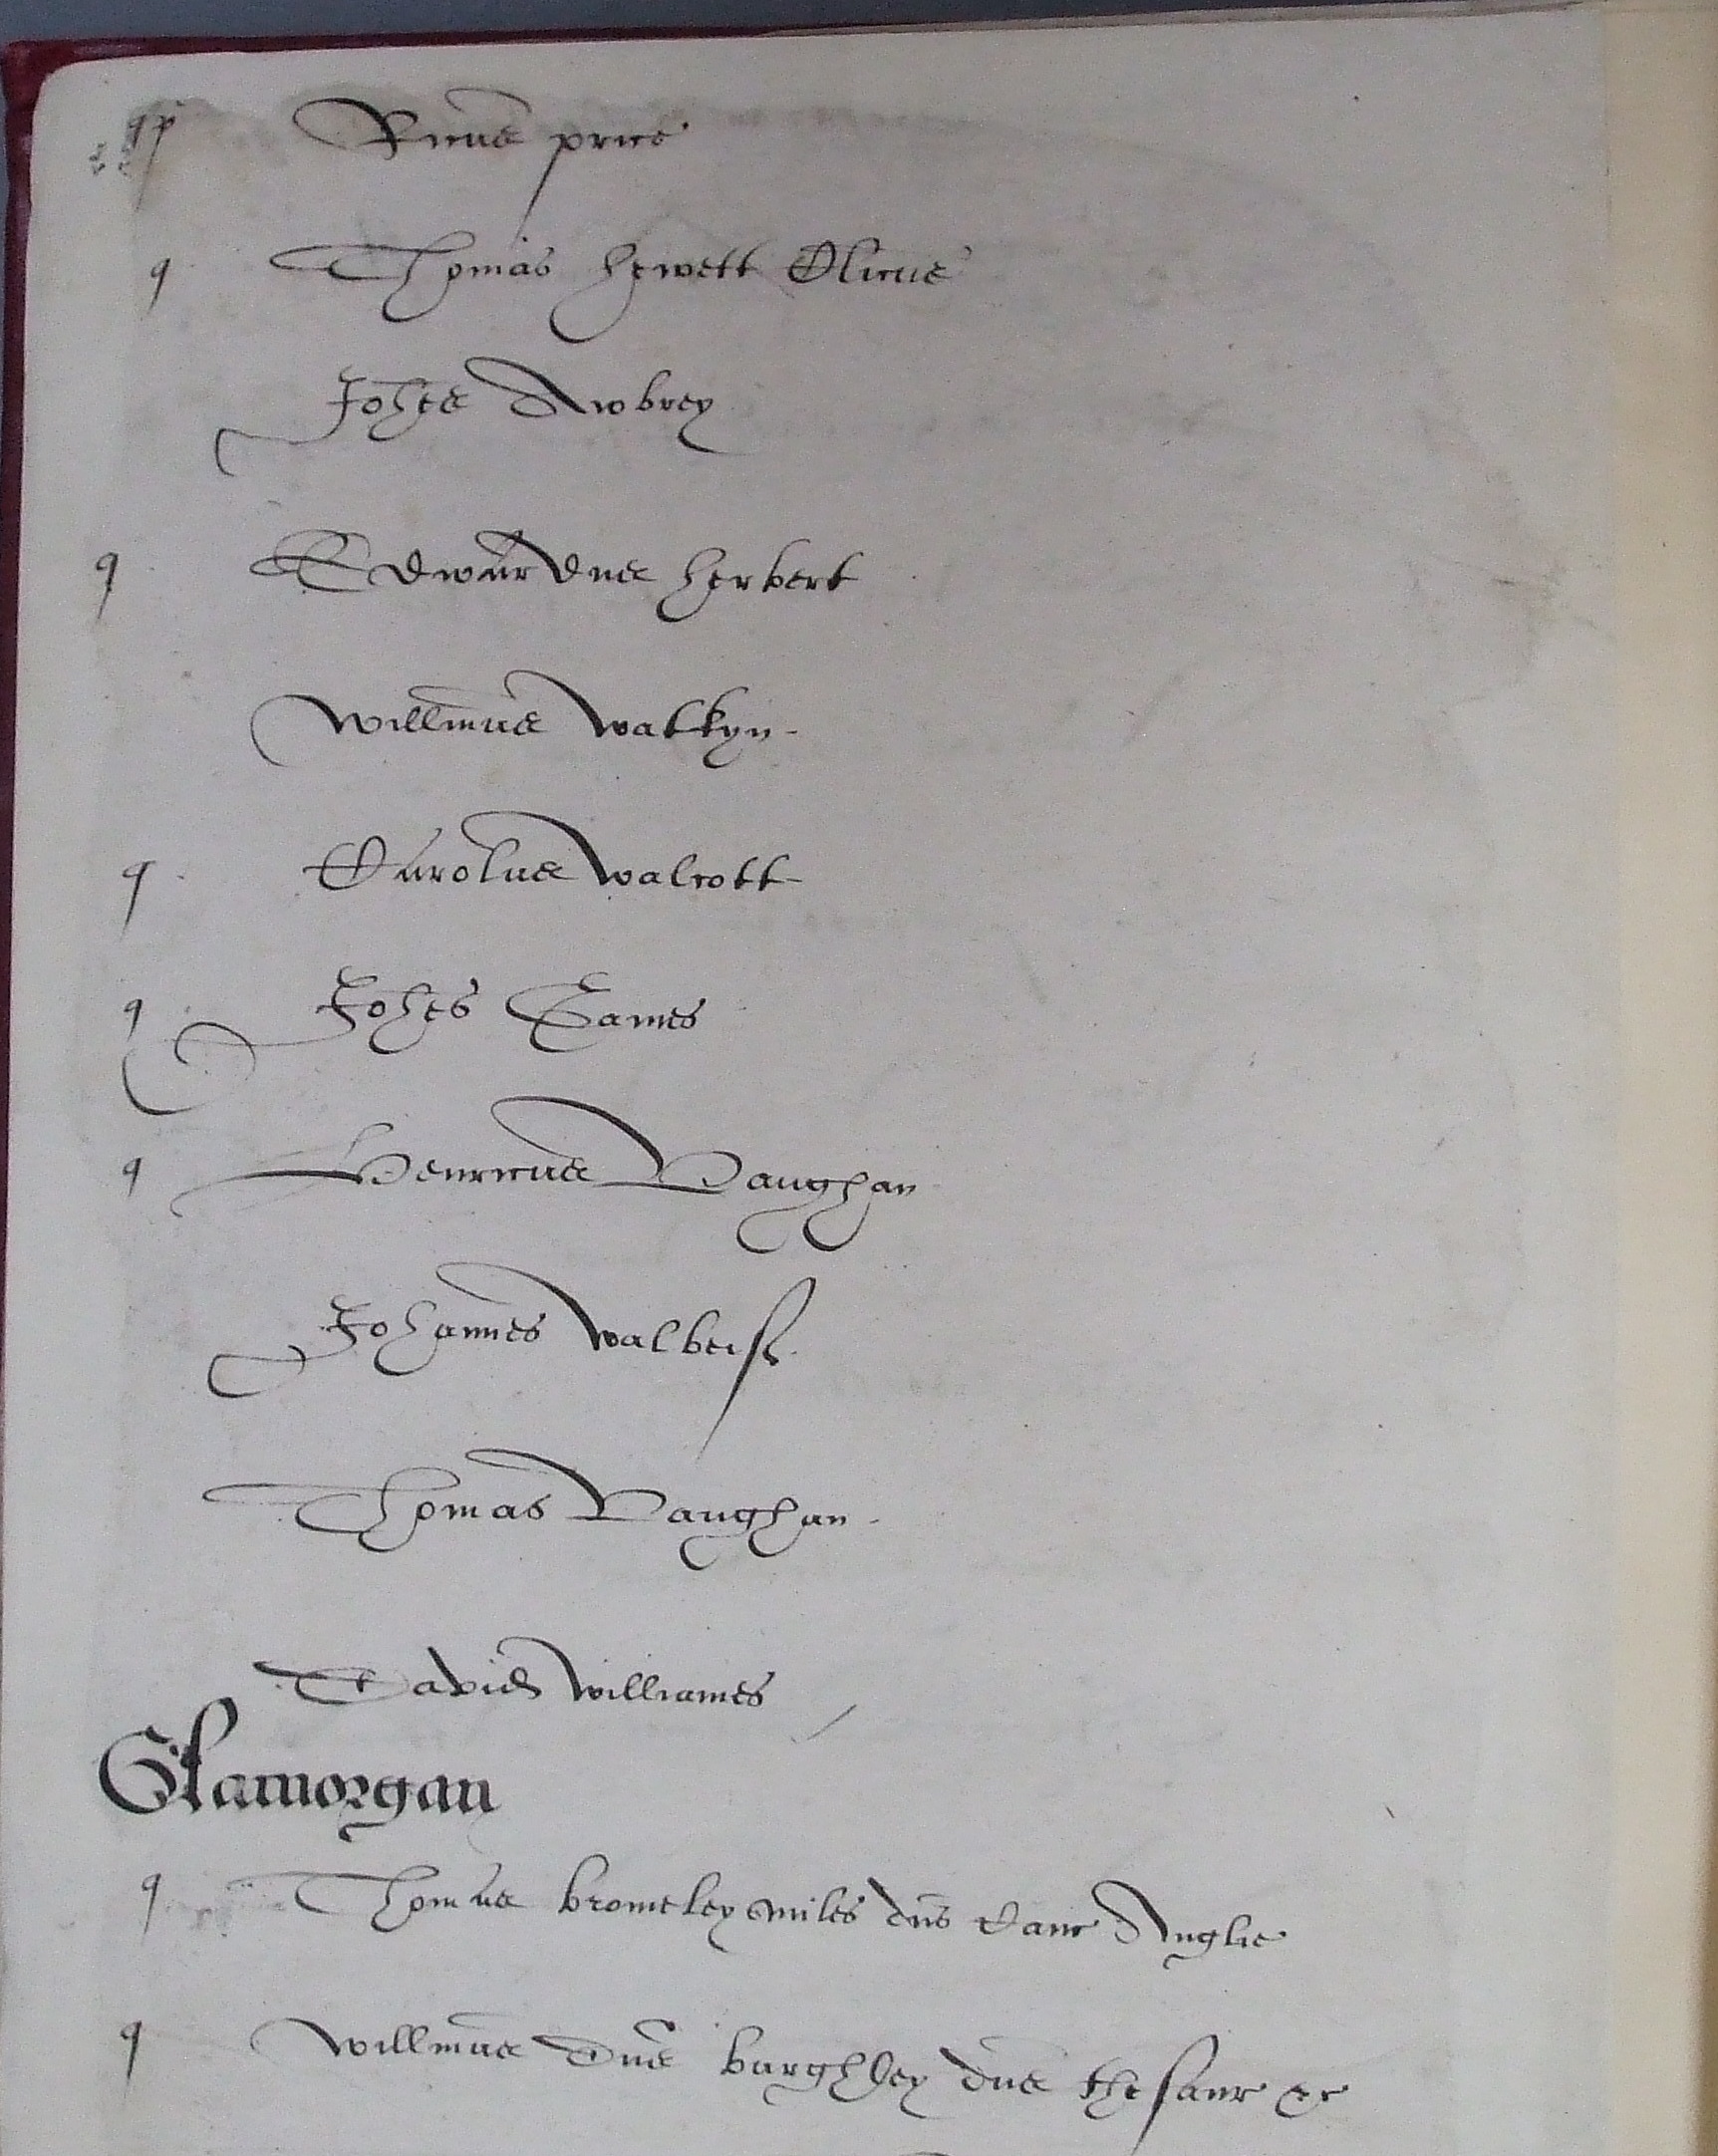 q Ricus price
q Thomas hewett Clicus
Johes Awbrey
q Edwardus herbert
Willmus Watkyn
q Carolus Walcott
q Johes Eames
q Henricus Vaughan
Johannes Walbeif
Thomas Vaughan
David Williames
Glamorgan
q Thomas bromeley miles dns Canc Anglie
q Willmus Dns burghley dns thesaur &c